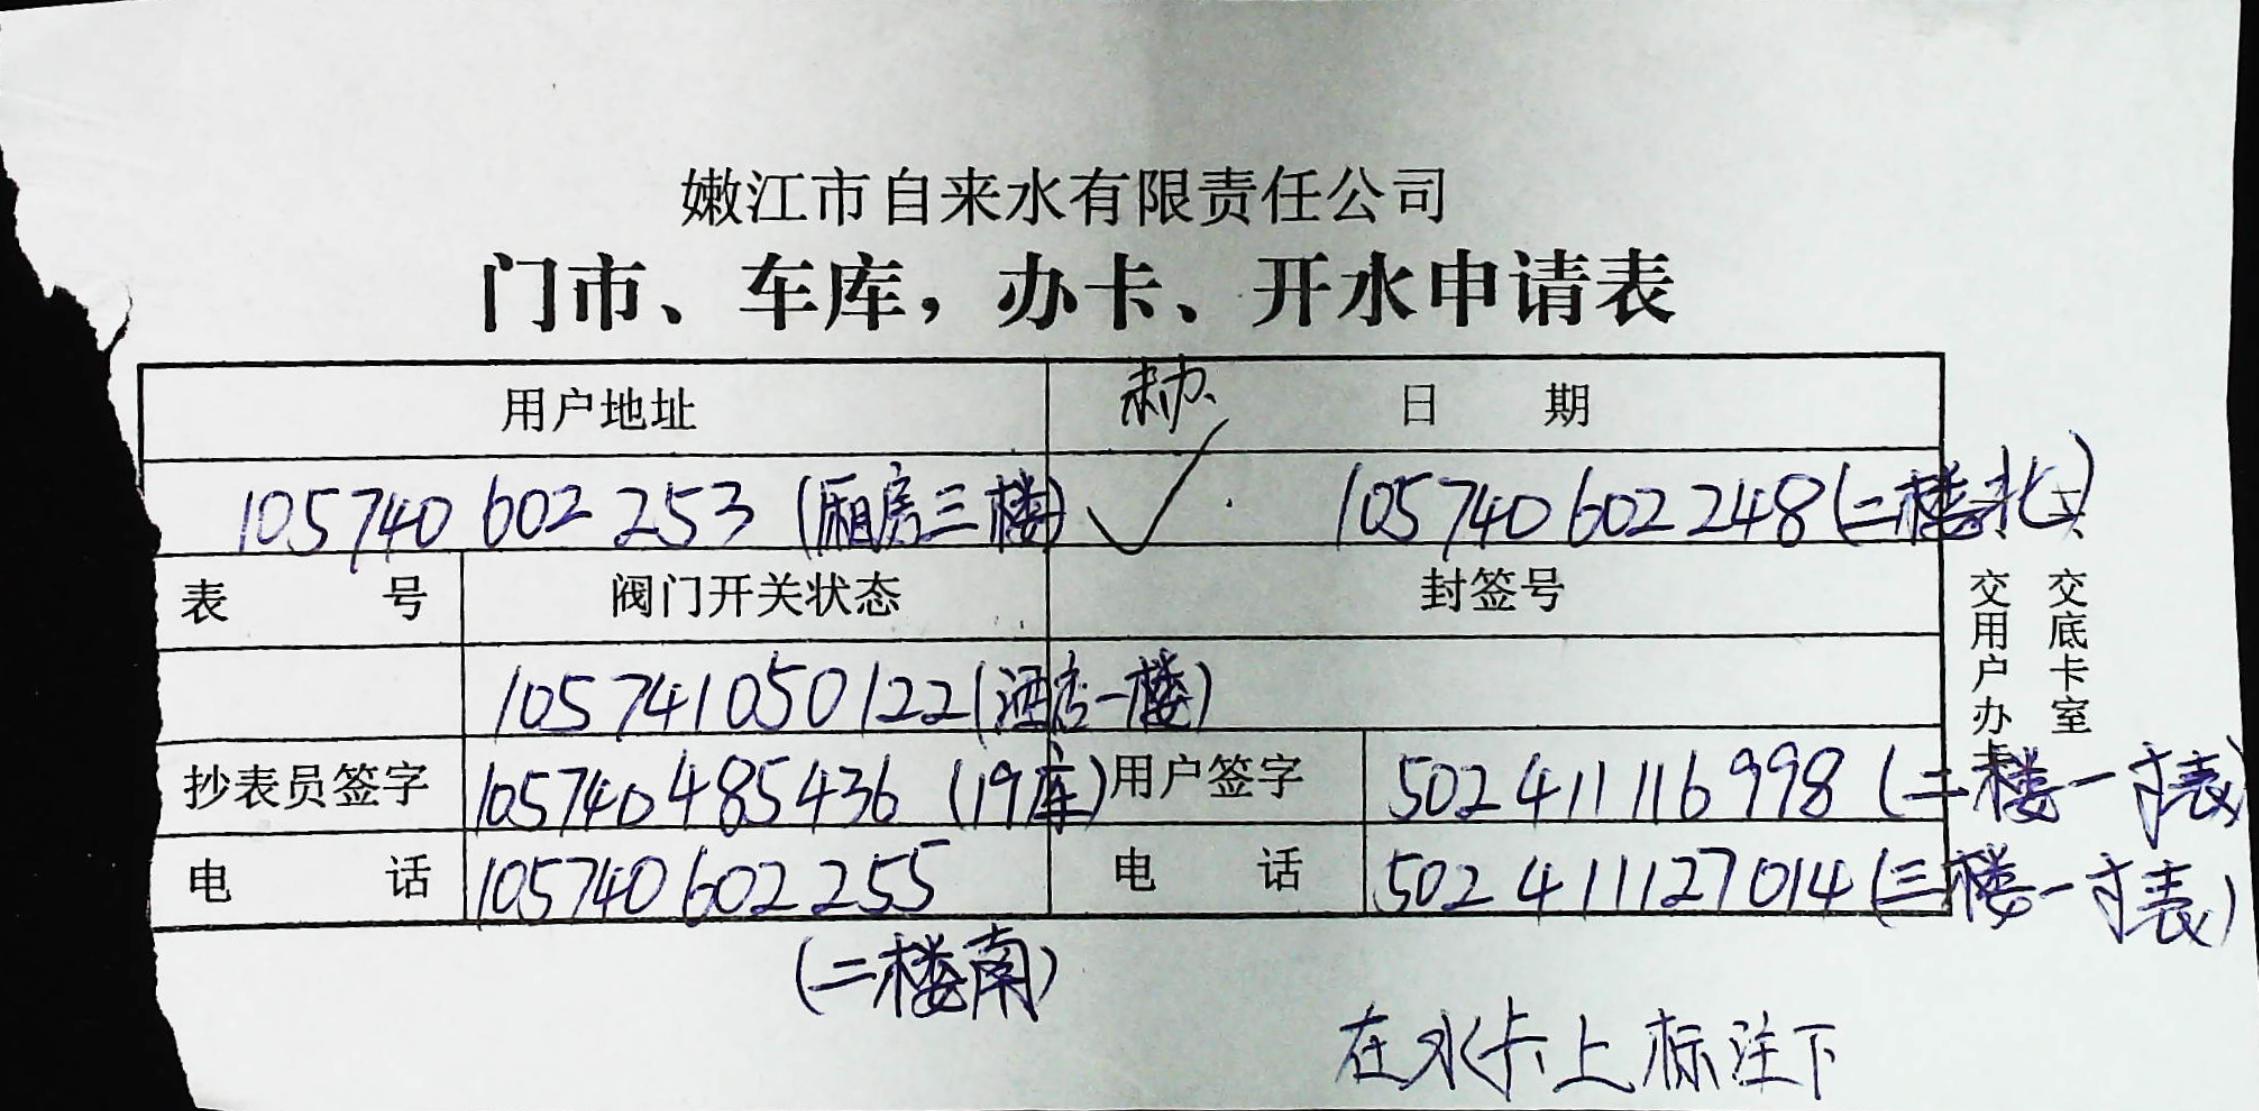 嫩江市自来水有限责任公司
门市、车库，办卡、开水申请表
用户地址 未办 日 期
105740602253（厢房三楼） ✓ 105740602248（二楼北）
表 号 阀门开关状态 封签号
105741050122（酒店一楼）
抄表员签字 105740485436（19库） 用户签字 502411116998（二楼一寸表）
电 话 105740602255 电 话 502411127014（三楼一寸表）
（二楼南）
在水卡上标注下
交用户办卡
交底卡室